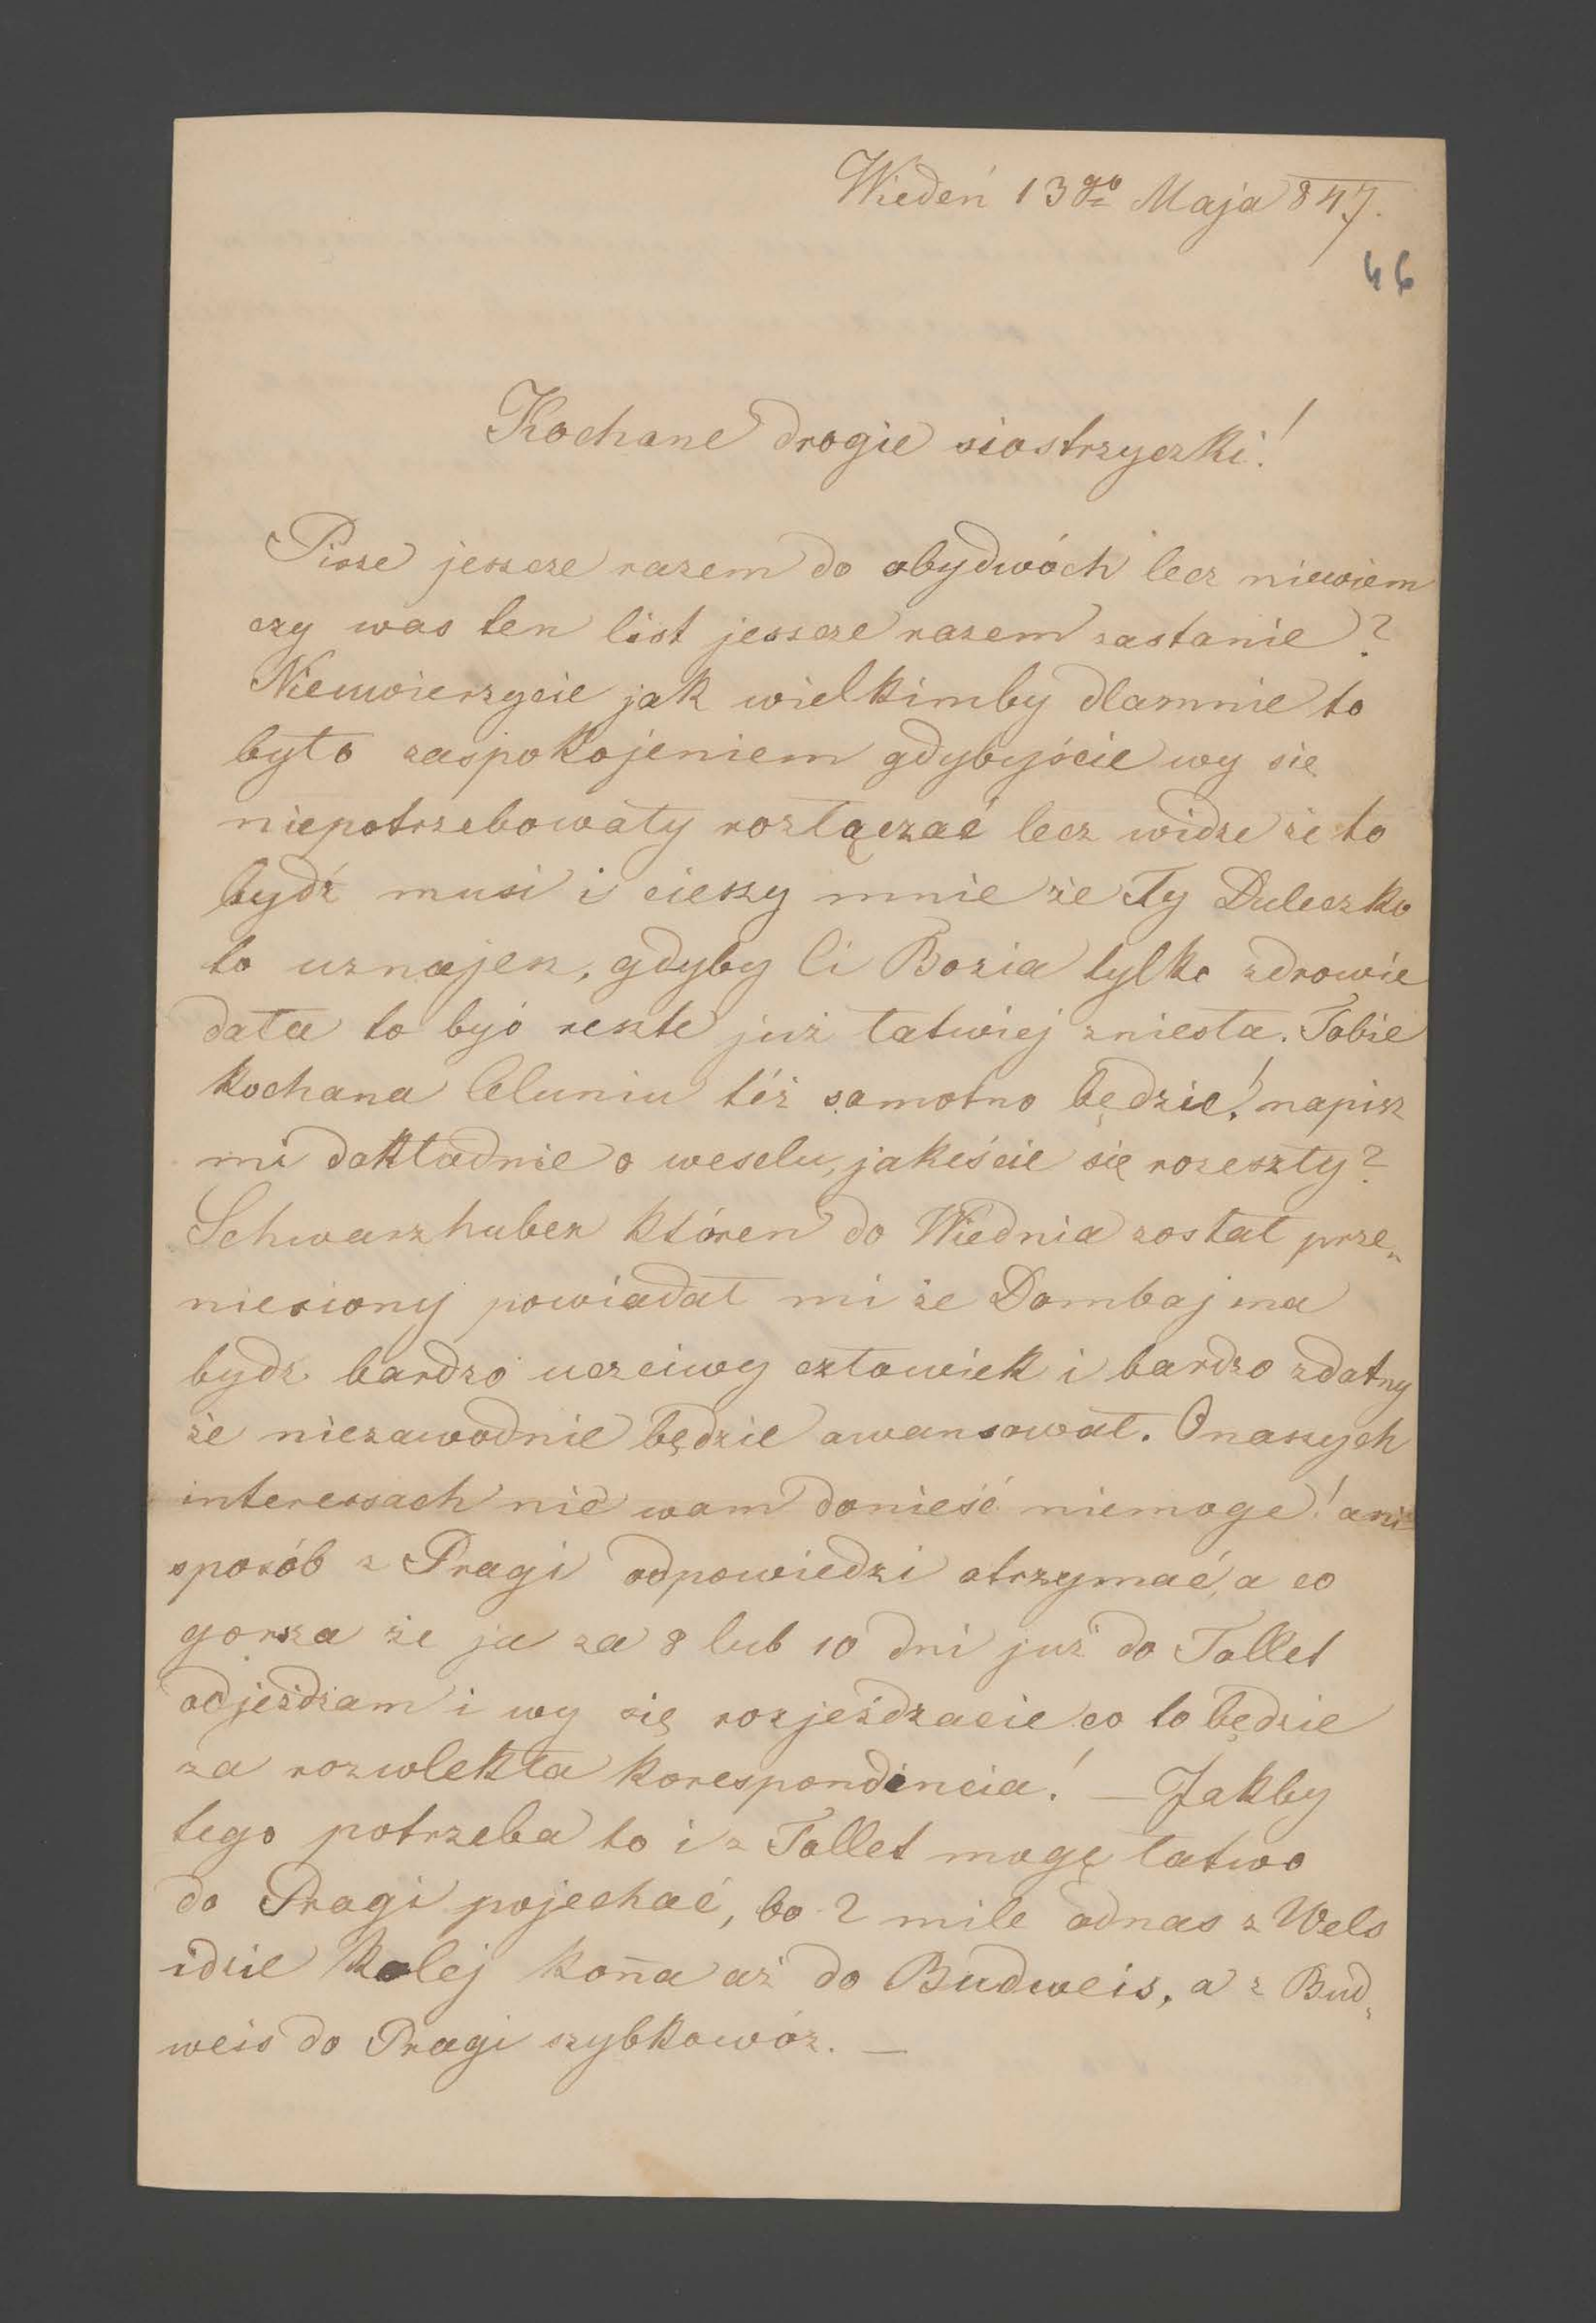 Wiedeń 13go Maja 847.
46
Kochane drogie siostrzyczki!
Pisze jeszcze razem do obydwóch lecz niewiem
czy was ten list jeszcze razem zastanie?
Nieuwierzycie jak wielkimby dlamnie to
było zaspokojeniem gdybyście wy się
niepotrzebowały rozłączać lecz widze że to
bydź musi i cieszy mnie że Ty Duleczko
to uznajesz, gdyby Ci Bozia tylko zdrowie
dała to byś reszte już łatwiej zniesła. Tobie
kochana Celuniu téż samotno będzie! napisz
mi dokładnie o weselu, jakeście się rozeszły?
Schwarzhuber któren do Wiednia został prze„
niesiony powiadał mi że Dombaj ma
bydz bardzo uczciwy człowiek i bardzo zdatny
że niezawodnie będzie awansował. O naszych
interessach nic wam donieść niemoge! ani
sposób z Pragi odpowiedzi otrzymać, a co
gorsza że ja za 8 lub 10 dni już do Tollet
odjeżdżam i wy się rozjeżdzacie co to będzie
za rozwlekła korespondencia! — Jakby
tego potrzeba to i z Tollet mogę łatwo
do Pragi pojechać, bo 2 mile odnas z Wels
idzie kolej końna aż do Budweis, a z Bud„
weis do Pragi szybkowóz. —